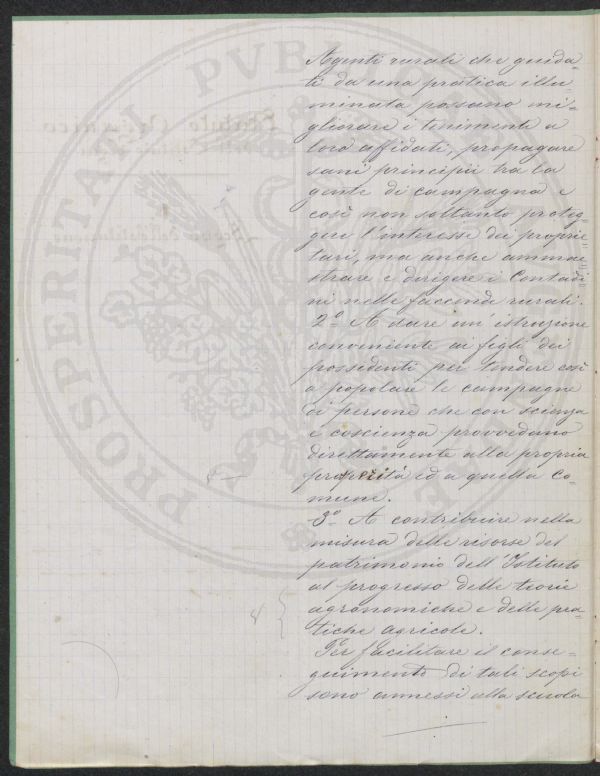 Agenti rurali che guida-
ti da una pratica illu-
minata possano mi-
gliorare i tenimenti a
loro affidati, propagare
sani principii tra la
gente di campagna e
così non soltanto proteg-
gere l'interesse dei proprie-
tari, ma anche ammae-
strare e dirigere i Contadi-
ni nelle faccende rurali.
2º A dare un'istruzione
conveniente ai figli dei
possedenti per tendere così
a popolare le campagne
di persone che con scienza
e coscienza provvedano
direttamente alla propria
prosperità ed a quella co-
mune.
3º A contribuire nella
misura delle risorse del
patrimonio dell'Istituto
al progresso delle teorie
agronomiche e delle pra-
tiche agricole.
Per facilitare il conse-
guimento di tali scopi
sono annessi alla scuola
PROSPERITATI PUBL